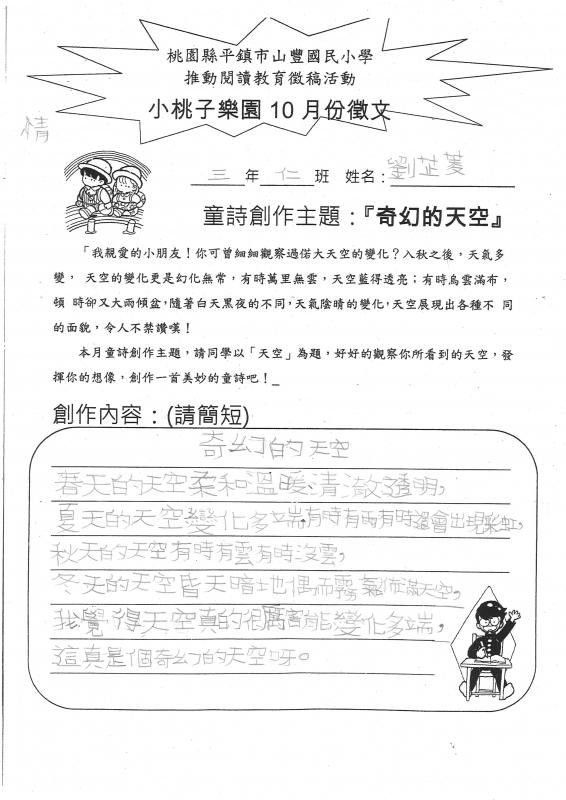 桃園縣平鎮市山豐國民小學
推動閱讀教育徵稿活動
小桃子樂園 10 月份徵文
情
三年仁班 姓名：劉芷菱
童詩創作主題：『奇幻的天空』
「我親愛的小朋友！你可曾細細觀察過偌大天空的變化？入秋之後，天氣多
變， 天空的變化更是幻化無常，有時萬里無雲，天空藍得透亮；有時烏雲滿布，
頓 時卻又大雨傾盆，隨著白天黑夜的不同，天氣陰晴的變化，天空展現出各種不 同
的面貌，令人不禁讚嘆！
本月童詩創作主題，請同學以「天空」為題，好好的觀察你所看到的天空，發
揮你的想像，創作一首美妙的童詩吧！_
創作內容：(請簡短)
奇幻的天空
春天的天空柔和溫暖、清澈透明，
夏天的天空變化多端，有時有雨有時還會出現彩虹，
秋天的天空有時有雲有時沒雲，
冬天的天空昏天暗地偶而霧氣佈滿天空，
我覺得天空真的很厲害能變化多端，
這真是個奇幻的天空呀。